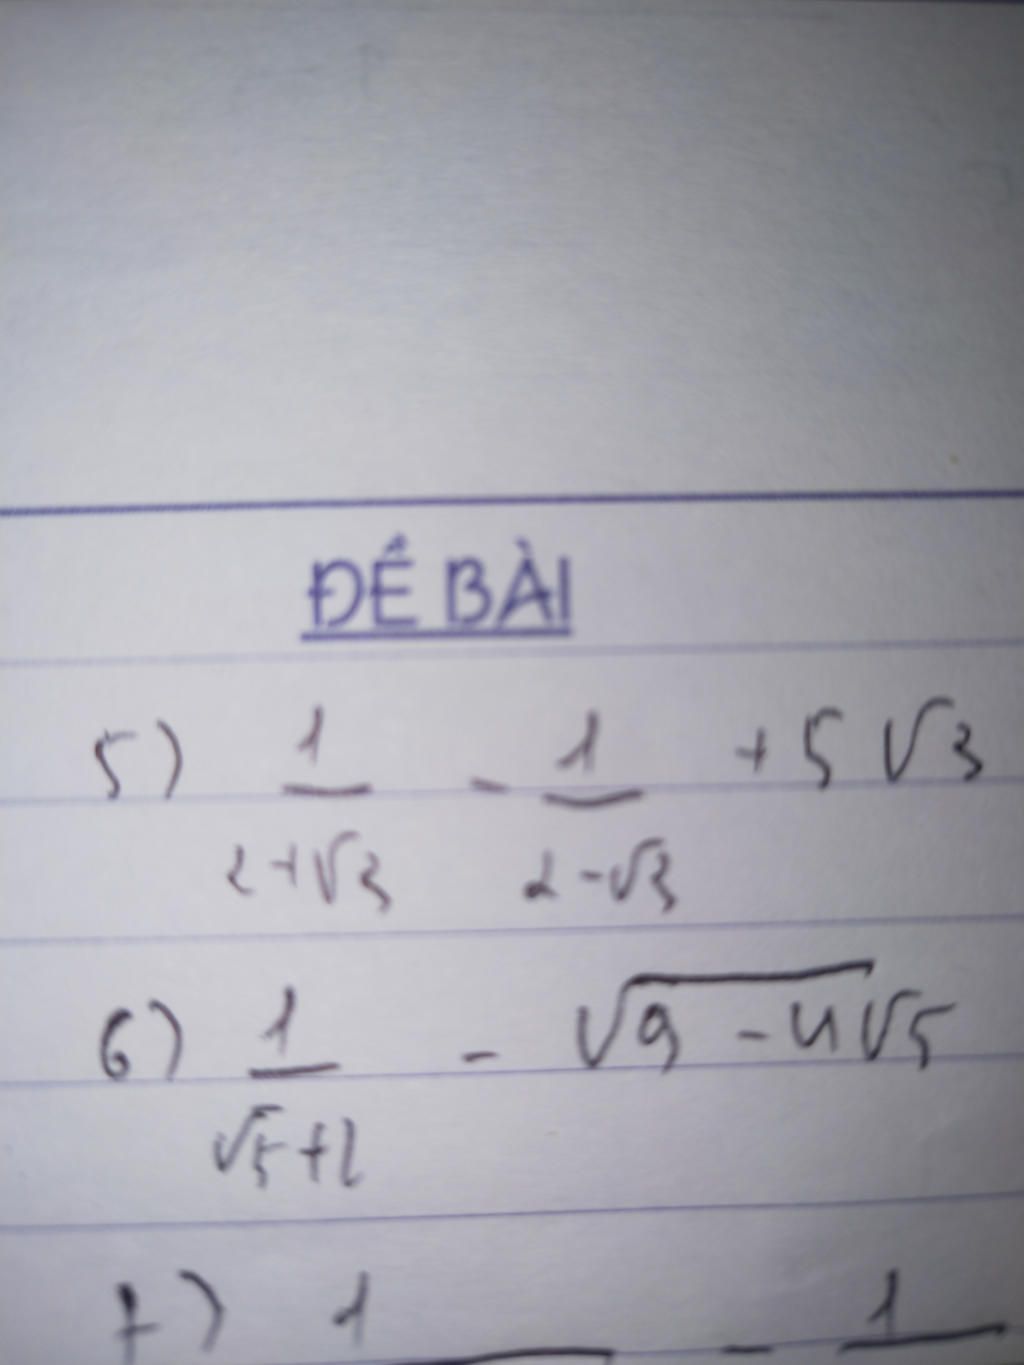 ĐỀ BÀI
5) 1/(2+√3) - 1/(2-√3) + 5√3
6) 1/(√5+2) - √(9-4√5)
7) 1 - 1